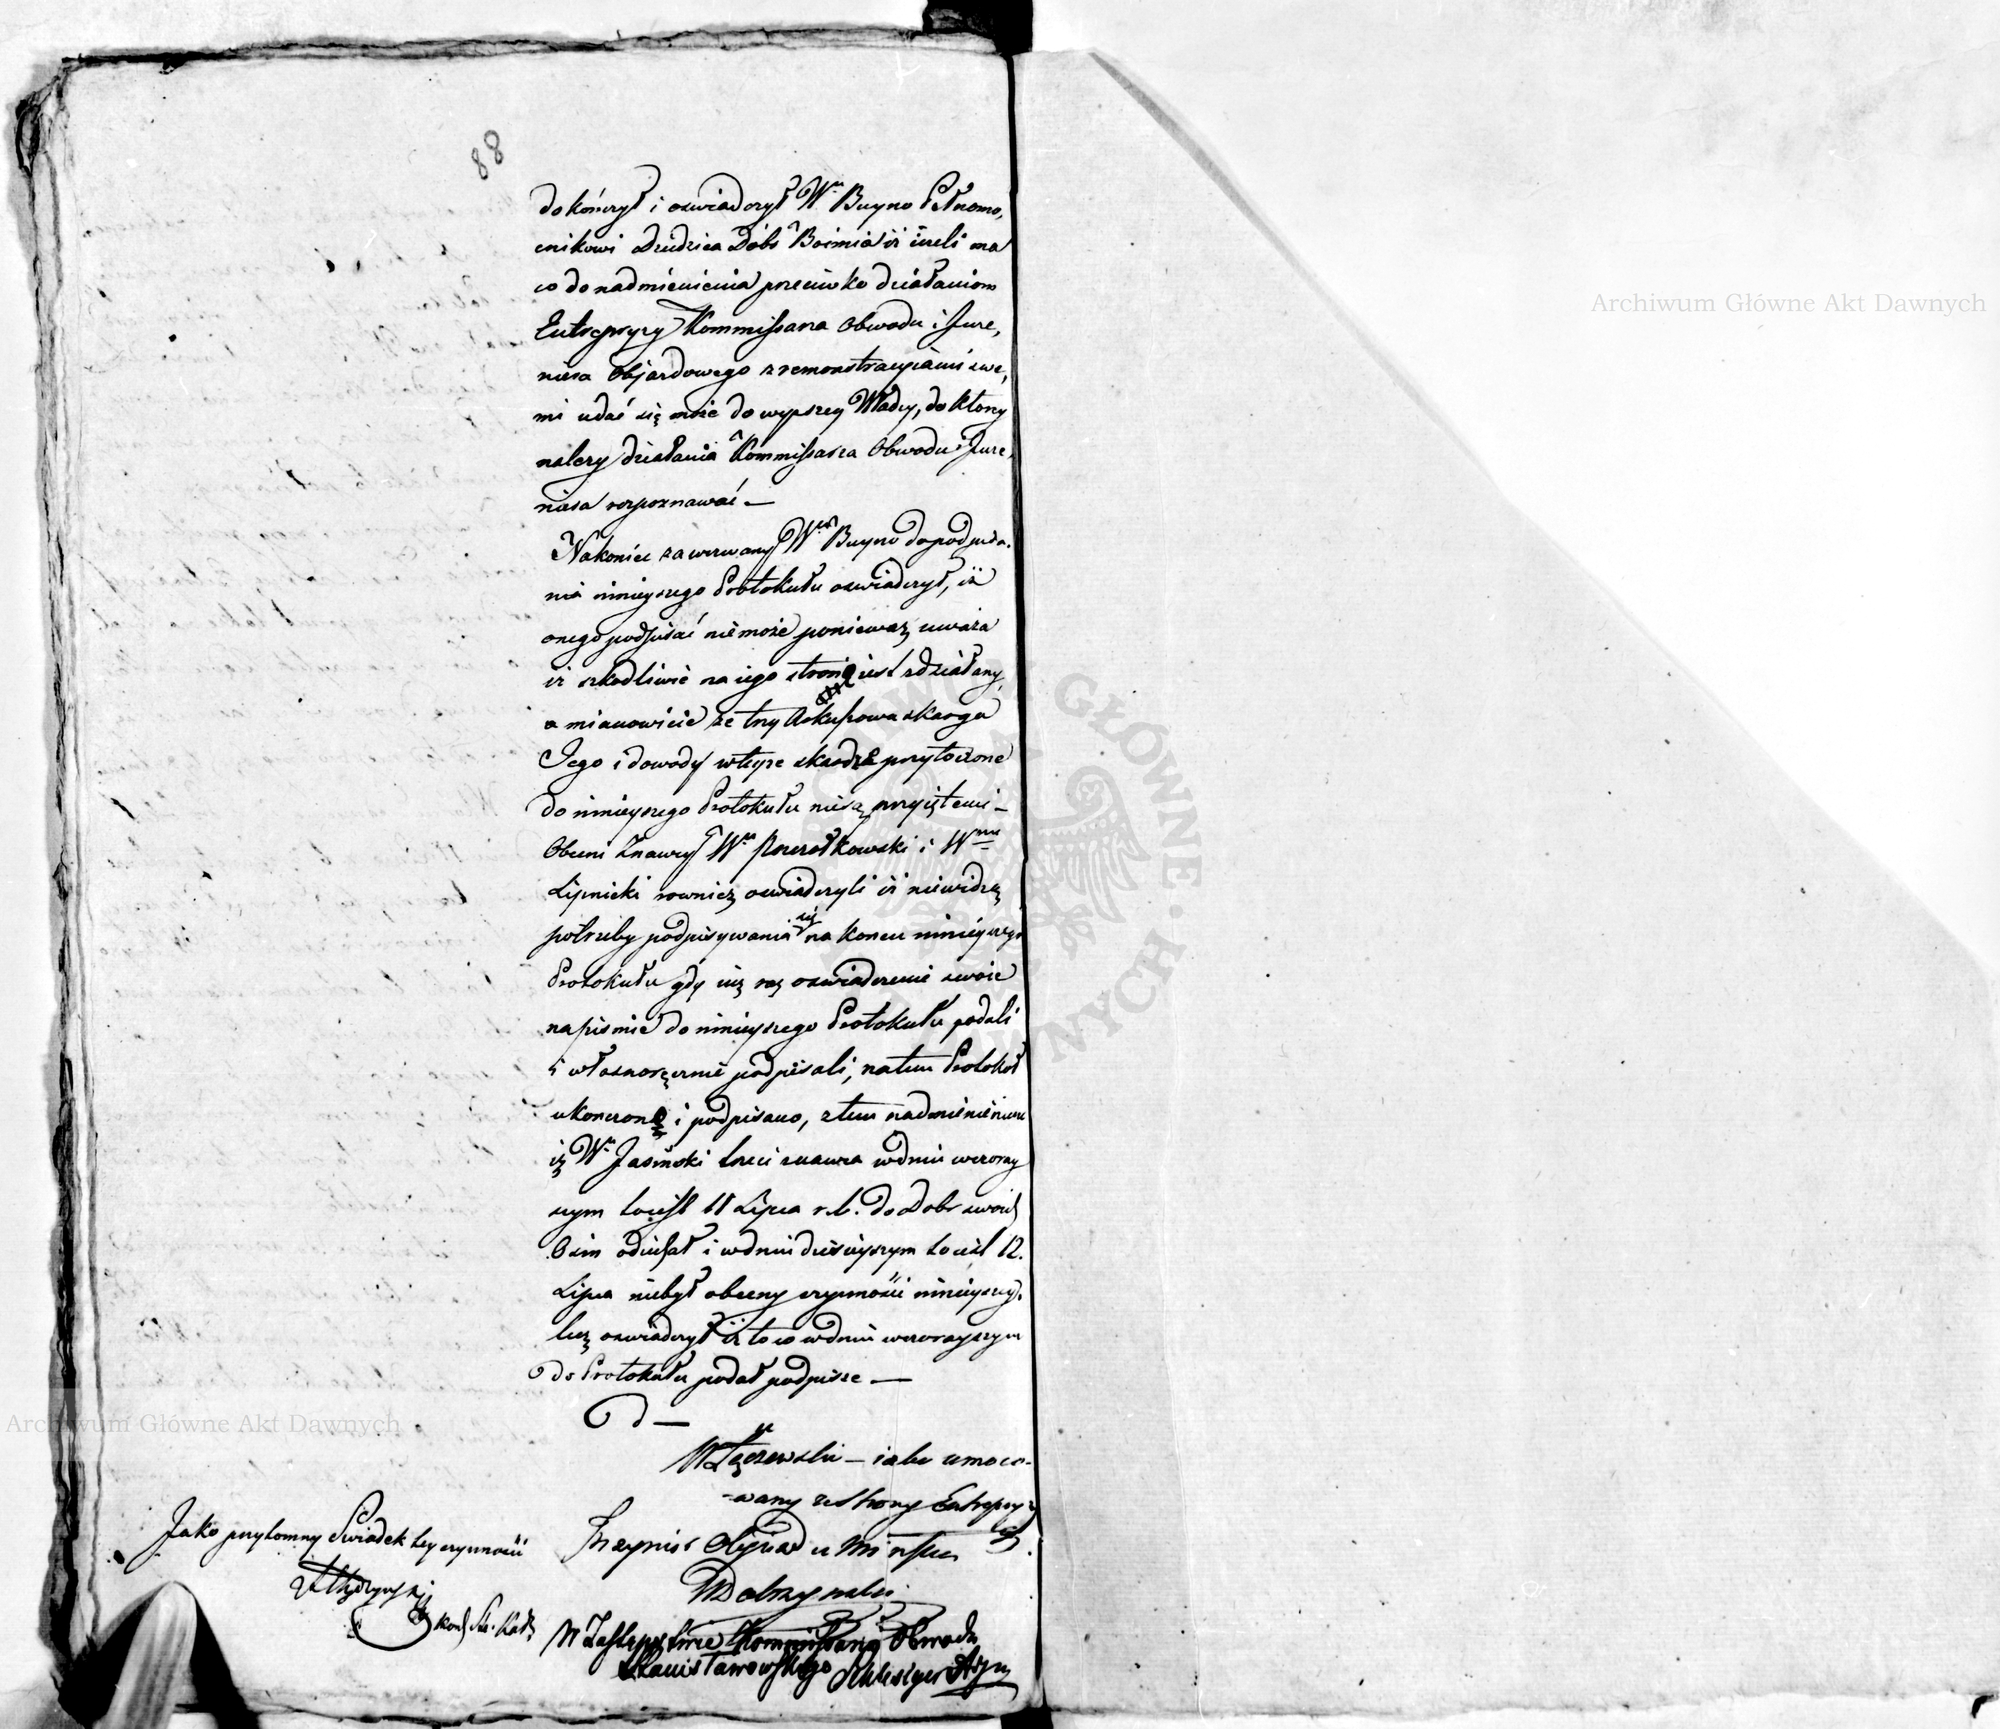 88
dokończył i oświadczył W.u Buyno Pełnomo,
cnikowi Dziedzica Dóbr Boimia iż ieżeli ma
co do nadmienienia przeciwko działaniom
Entrepryzy Kommissarza Obwodu i Inże,
niera Objazdowego z remonstracyiami swe,
mi udać się może do wyższey Władzy, do którey
należy działania Kommissarza Obwodu i Inże,
niera rozpoznawać —
Nakoniec zawezwany W.ny Buyno do podpisa.
nia ninieyszego Protokułu oświadczył, iż
onego podpisać niemoże ponieważ uważa
iż szkodliwie na iego stronę iest zdziałany,
a mianowicie że trzy Arkuszowa skarga
Jego i dowody w teyże skardze przytoczone
do ninieyszego Protokułu nie są przyiętemi —
Obecni Znawcy W.u Pszczółkowski i W.ny
Lipnicki rownież oświadczyli iż niewidzą
potrzeby podpisywania się na końcu ninieyszego
Protokułu gdy iuż raz oświadczenie swoie
na pismie do ninieyszego Protokułu podali
i własnoręcznie podpisali, na tem Protokół
ukończono i podpisano, z tem nadmienieniem
iż W.u Jasiński trzeci znawca w dniu wczoray
szym to iest 11 Lipca r.b. do Dobr swoich
Osin odiechał i w dniu dzisieyszym to iest 12.
Lipca niebył obecny czynności ninieyszey,
lecz oświadczył iż to co w dniu wczorayszym
do Protokułu podał podpisze —
W Łęczewski — iako umoco-
-wany ze strony Entrepryzy
Inżynier Objazdu Mińsku
W Dobrzynski
W Zastępstwie Kommissarza Obwodu
Stanisławowskiego Schlesiger Adju
Jako przytomny Swiadek tey czynności
Archiwum Główne Akt Dawnych
Archiwum Główne Akt Dawnych
GŁÓWNE